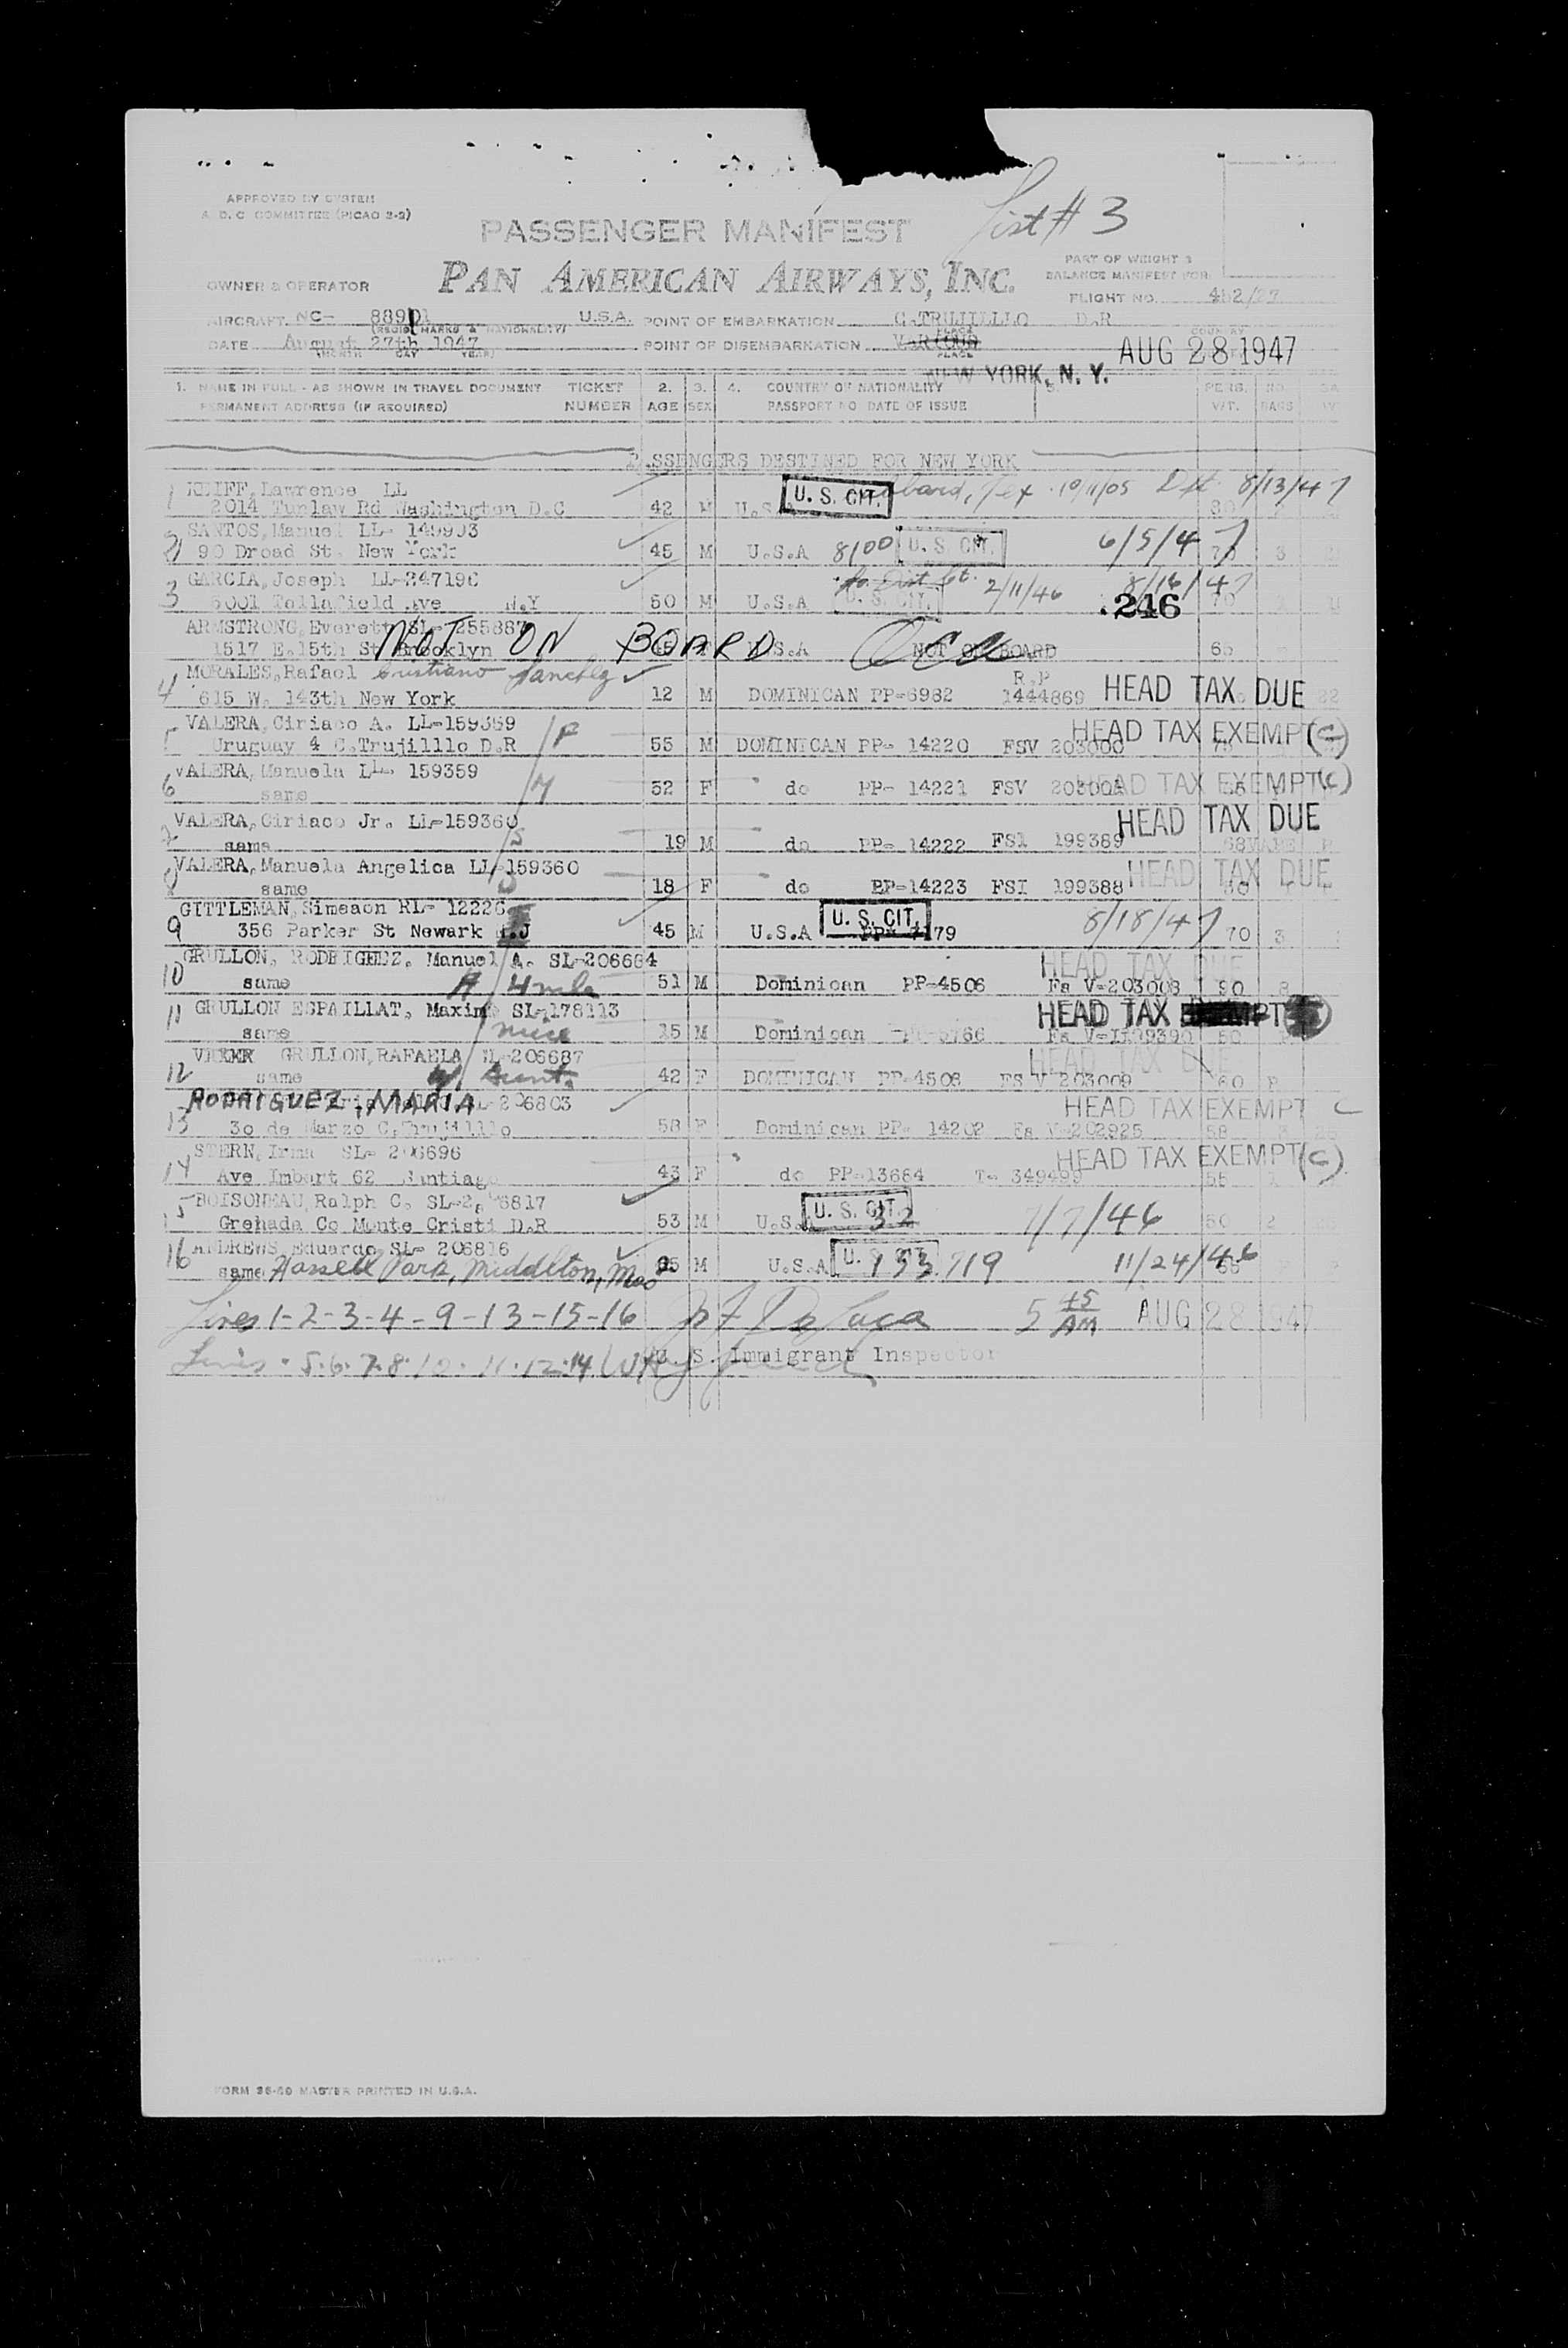 List # 3
APPROVED BY SYSTEM
A. D. C. COMMITTEE (PICAO 2-2)
PASSENGER MANIFEST
PAN AMERICAN AIRWAYS, INC.
PART OF WEIGHT &
BALANCE MANIFEST FOR:
OWNER & OPERATOR
FLIGHT NO. 452/27
AIRCRAFT NC- 88901 U.S.A. POINT OF EMBARKATION C.TRUJILLLO D.R
(REGIS. MARKS & NATIONALITY) PLACE COUNTRY
DATE August 27th 1947 POINT OF DISEMBARKATION VARIOUS AUG 28 1947
(MONTH DAY YEAR) PLACE
NEW YORK, N. Y.
1. NAME IN FULL - AS SHOWN IN TRAVEL DOCUMENT TICKET 2. 3. 4. COUNTRY OF NATIONALITY PERS. NO.
PERMANENT ADDRESS (IF REQUIRED) NUMBER AGE SEX PASSPORT NO DATE OF ISSUE WT. BAGS
PASSENGERS DESTINED FOR NEW YORK
1 Lawrence LL U. S. CIT. Tex 10/11/05 8/13/47
2014 Tunlaw Rd Washington D.C 42 M U.S.A 80
2 SANTOS, Manuel LL- 149993
90 Broad St. New York 45 M U.S.A 8100 U. S. CIT. 6/5/47 3
3 GARCIA, Joseph LL-247190 2/11/46 8/16/47
Ave N.Y 50 M U.S.A U. S. CIT. .246 70
ARMSTRONG, Everett SL- 255887
1517 E.15th St Brooklyn NOT ON BOARD U.S.A NOT ON BOARD 65
MORALES, Rafael R.P
4 615 W. 143th New York 12 M DOMINICAN PP-6982 1444869 HEAD TAX DUE
5 VALERA, Ciriaco A. LL-159359 HEAD TAX EXEMPT (C)
Uruguay 4 C.Trujilllo D.R 55 M DOMINICAN PP- 14220 FSV 203000
6 VALERA, Manuela LL- 159359 HEAD TAX EXEMPT (C)
same 52 F do PP- 14221 FSV
VALERA, Ciriaco Jr. LL-159360 HEAD TAX DUE
same 19 M do PP- 14222 FSI 199389
8 VALERA, Manuela Angelica LL-159360 HEAD TAX DUE
same 18 F do PP-14223 FSI 199388
GITTLEMAN, Simeaon RL- 12226 U. S. CIT. 8/18/47
9 356 Parker St Newark N.J 45 M U.S.A PP- 70 3
GRULLON, RODRIGUEZ, Manuel A. SL-206684 HEAD TAX DUE
10 same 51 M Dominican PP-4506 Fs V-203008 90
11 GRULLON ESPAILLAT, Maximo SL-178113 HEAD TAX
same 15 M Dominican 50
GRULLON, RAFAELA SL-206687 HEAD TAX DUE
12 same Aunt. 42 F DOMINICAN PP-4508 FS V 203009 60
RODRIGUEZ, MARIA SL-206803 HEAD TAX EXEMPT C
13 30 de Marzo C.Trujilllo 58 F Dominican PP- 14202 Fs V-202925 58
STERN, Irma SL- 206696 HEAD TAX EXEMPT (C)
14 Ave Imbert 62 Santiago 43 F do PP-13684 T- 349499 55
15 BOISONEAU, Ralph C. SL-206817 U. S. CIT.
Grenada Co Monte Cristi D.R 53 M U.S.A 32 7/7/46 50 2
16 ANDREWS, Eduardo SL- 206816
same Park, Middleton, M U.S.A U. S. CIT. 133719 11/24/46
Lines 1-2-3-4-9-13-15-16 5 45 AM AUG 28 1947
Lines 5.6.7.8.10.11.12.14 U. S. Immigrant Inspector
FORM MASTER PRINTED IN U.S.A.